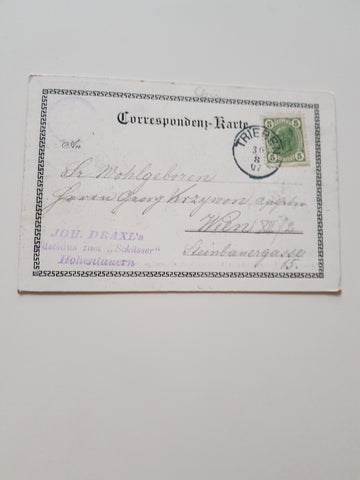 Correspondenz-Karte.
TRIEBEN
30
8
07
5 5
5 5
An
Sr Wohlgeboren
Herrn Georg Krzywon,
Wien XII/2
Steinbauergasse
15.
JOH. DRAXL's
Gasthaus zum „Schüsser“
Hohentauern